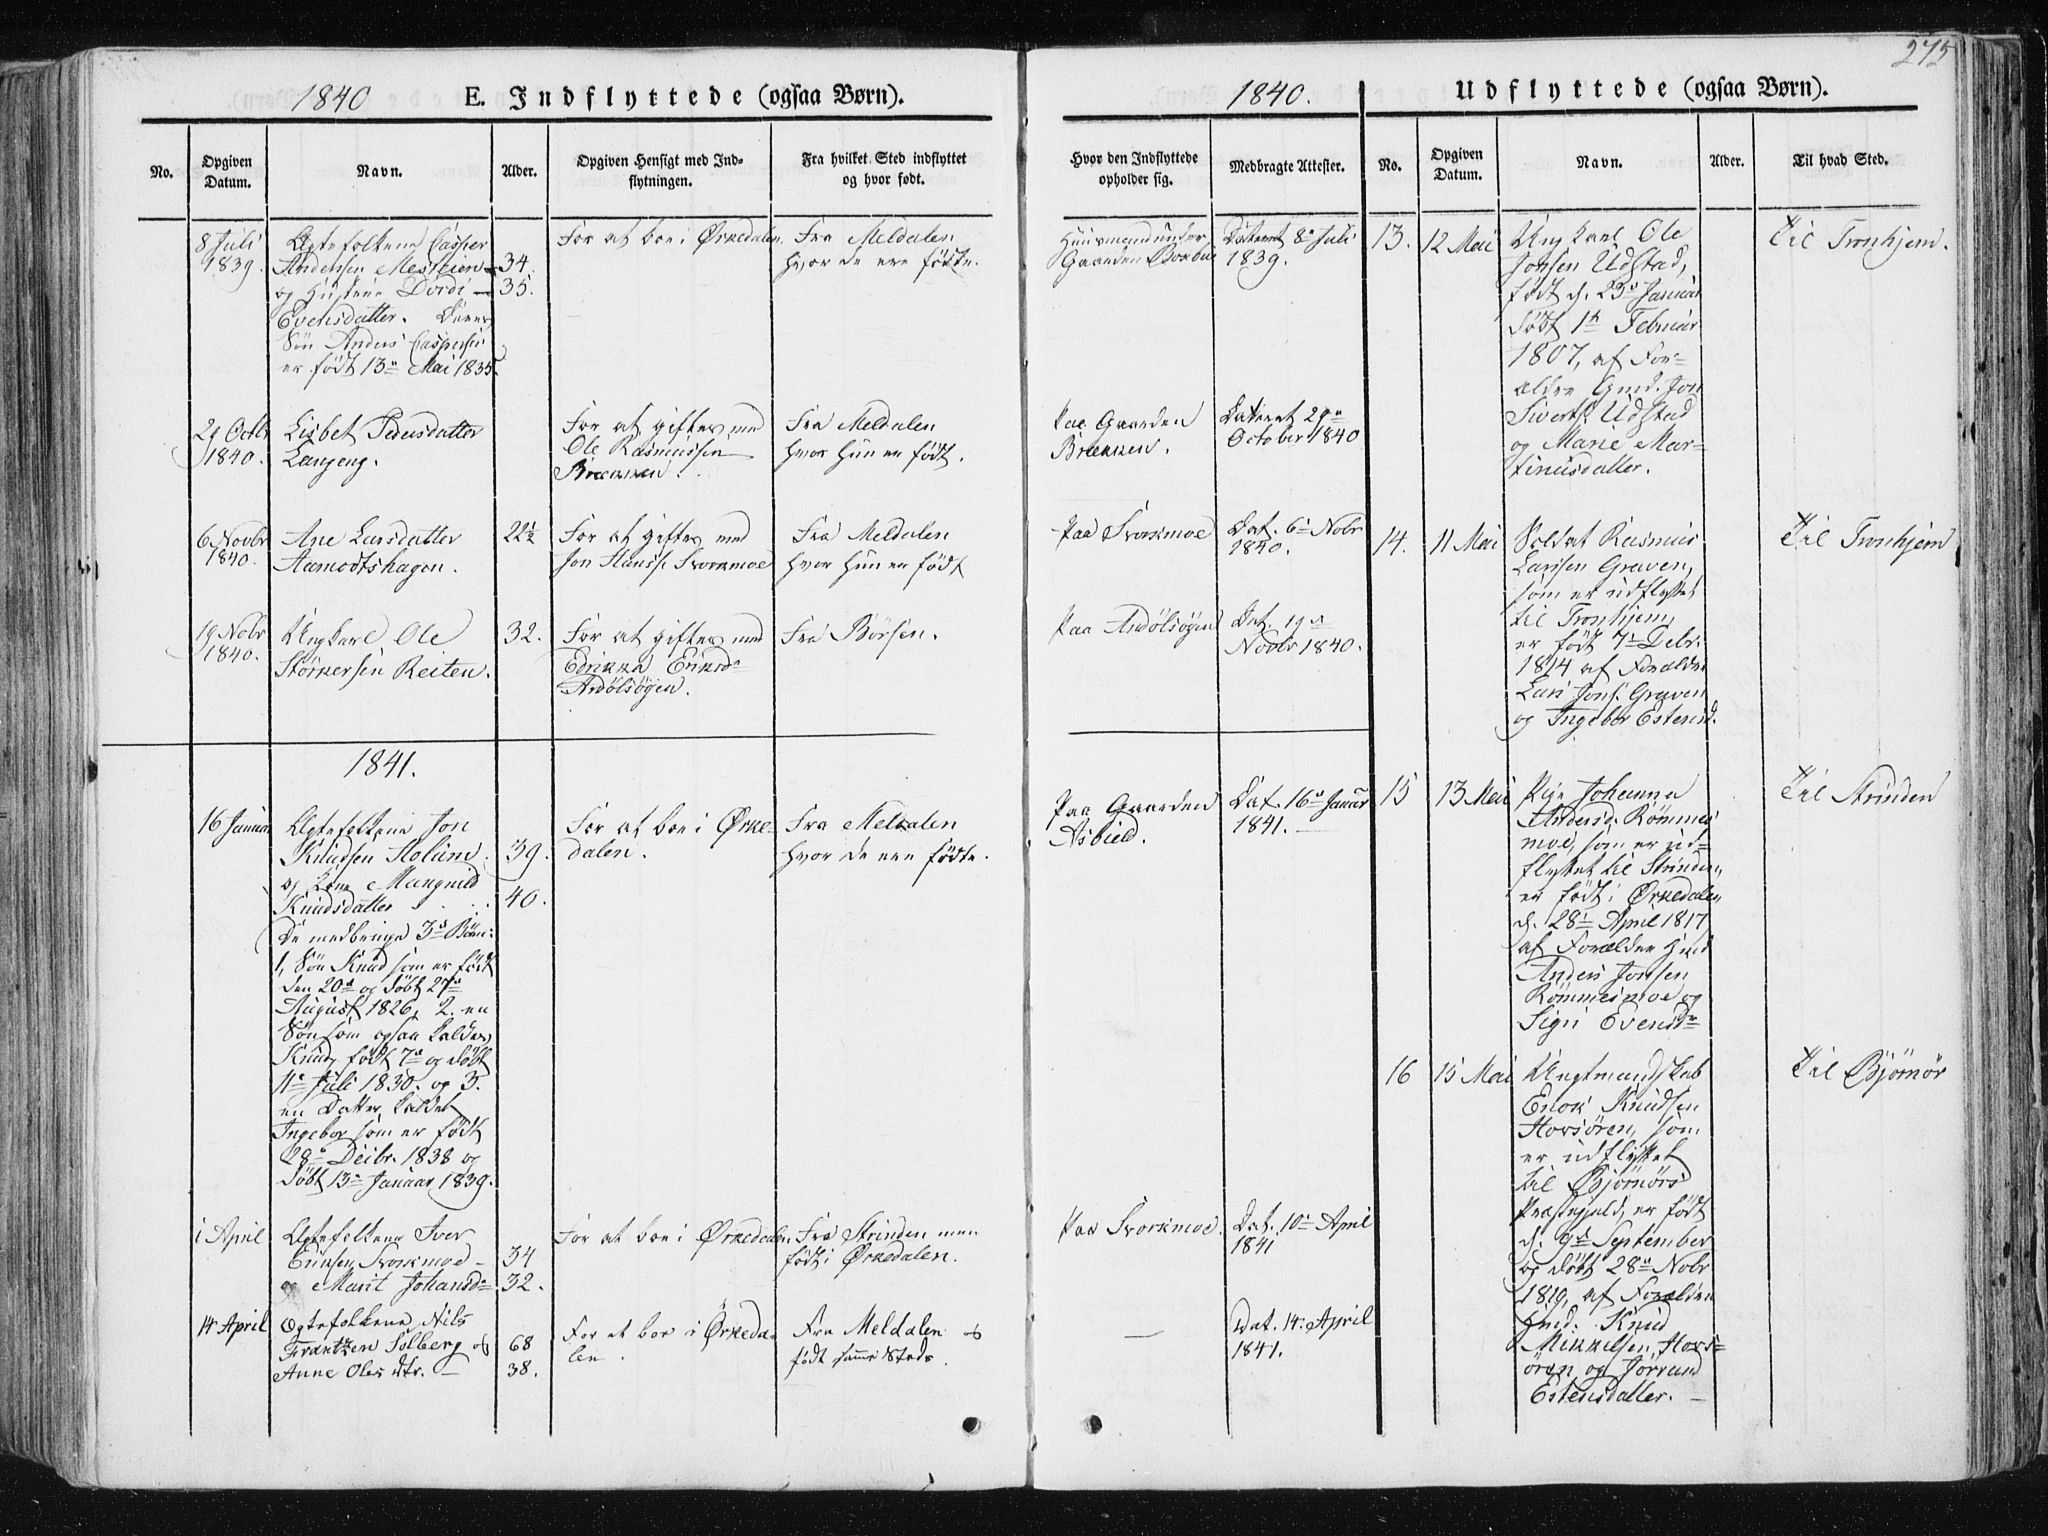 275
1840 E. Indflyttede (ogsaa Børn).
No. Opgiven Datum. Navn. Alder. Opgiven Hensigt med Ind-
flytningen. Fra hvilket Sted indflyttet
og hvor født.
8 Juli
1839.
Ægtefolkene Casper
Andersen Mesteien 34.
og Hustrue Dordi 35.
Evensdatter. Deres
Søn Anders Caspersen
er født 13de Mai 1835.
For at boe i Ørkedalen.
Fra Meldalen
hvor de ere fødte.
29 Octbr
1840.
Lisbet Pedersdatter
Langeng.
For at giftes med
Ole Rasmussen
Brekken.
Fra Meldalen
hvor hun er født.
6 Novbr
1840.
Ane Larsdatter
Aamodtshagen.
22½
For at giftes med
Jon Hanss. Svorkmoe
Fra Meldalen
hvor hun er født
19 Nobr
1840.
Ungkarl Ole
Størkersen Reiten.
32.
For at giftes med
Edrikka Eriksd.
Ardølsøgen.
Fra Børsen.
1841.
16 Januar
Ægtefolkene Jon
Knudsen Holum 39.
og Kone Mangnild
Knudsdatter 40.
De medbringe 3 Børn:
1, Søn Knud som er født
den 20de og døbt 27de
August 1826, 2. en
Søn som ogsaa kaldes
Knud, født 7de og døbt
11te Juli 1830. og 3.
en Datter kaldet
Ingebor som er født
28de Decbr. 1838 og
døbt 13de Januar 1839.
For at boe i Ørke-
dalen.
Fra Meldalen
hvor de ere fødte.
1 April
Ægtefolkene Iver
Ericksen Svorkmoe 34
og Marit Johansd. 32.
For at boe i Ørkedalen
Fra Strinden men
født i Ørkedalen.
14 April
Ægtefolkene Nils
Frantzen Solberg og 68
Anne Olesdtr. 38.
For at boe i Ørkeda-
len.
Fra Meldalen og
født samme Steds.
1840. Udflyttede (ogsaa Børn).
Hvor den Indflyttede
opholder sig. Medbragte Attester. No. Opgiven
Datum. Navn. Alder. Til hvad Sted.
Huusmand under
Gaarden
Dateret 8de Juli
1839.
Paa Gaarden
Brekken.
Dateret 29de
October 1840
Paa Svorkmoe
Dat. 6te Nobr
1840.
Paa Ardølsøgen
Dat. 19de
Novbr 1840.
Paa Gaarden
Asbield.
Dat. 16de Januar
1841.
Paa Svorkmoe.
Dat. 10de April
1841
Dat. 14. April
1841.
13. 12 Mai
Ungkarl Ole
Jonsen Udstad,
født d. 23de Januar
døbt 1te Februar
1807, af For-
ældre Gmd. Jon
Sivertss. Udstad
og Marie Mar-
tinusdatter.
Til Tronhjem.
14. 11 Mai
Soldat Rasmus
Larssen Graven,
som er udflyttet
til Tronhjem,
er født 7de Debr.
1814 af Forældre
Lars Jons. Graven
og Ingebor Estensd.
Til Tronhjem
15 13 Mai
Pige Johanna
Andersd. Rømmes
moe, som er ud-
flyttet til Strinden,
er født i Ørkedalen
d. 28de April 1817
af Forældre Hmd
Anders Jonsen
Rømmesmoe og
Sigri Evensdr
Til Strinden
16 15 Mai
Ungtmandskab
Enok Knudsen
Hovsøren, som
er udflyttet
til Bjørnørs
Præstegjeld, er født
d. 9de September
og døbt 28de Nobr
1819, af Forældre
Hmd. Knud
Mikkelsen Hovs-
øren og Jørrand
Estensdatter.
Til Bjørnør